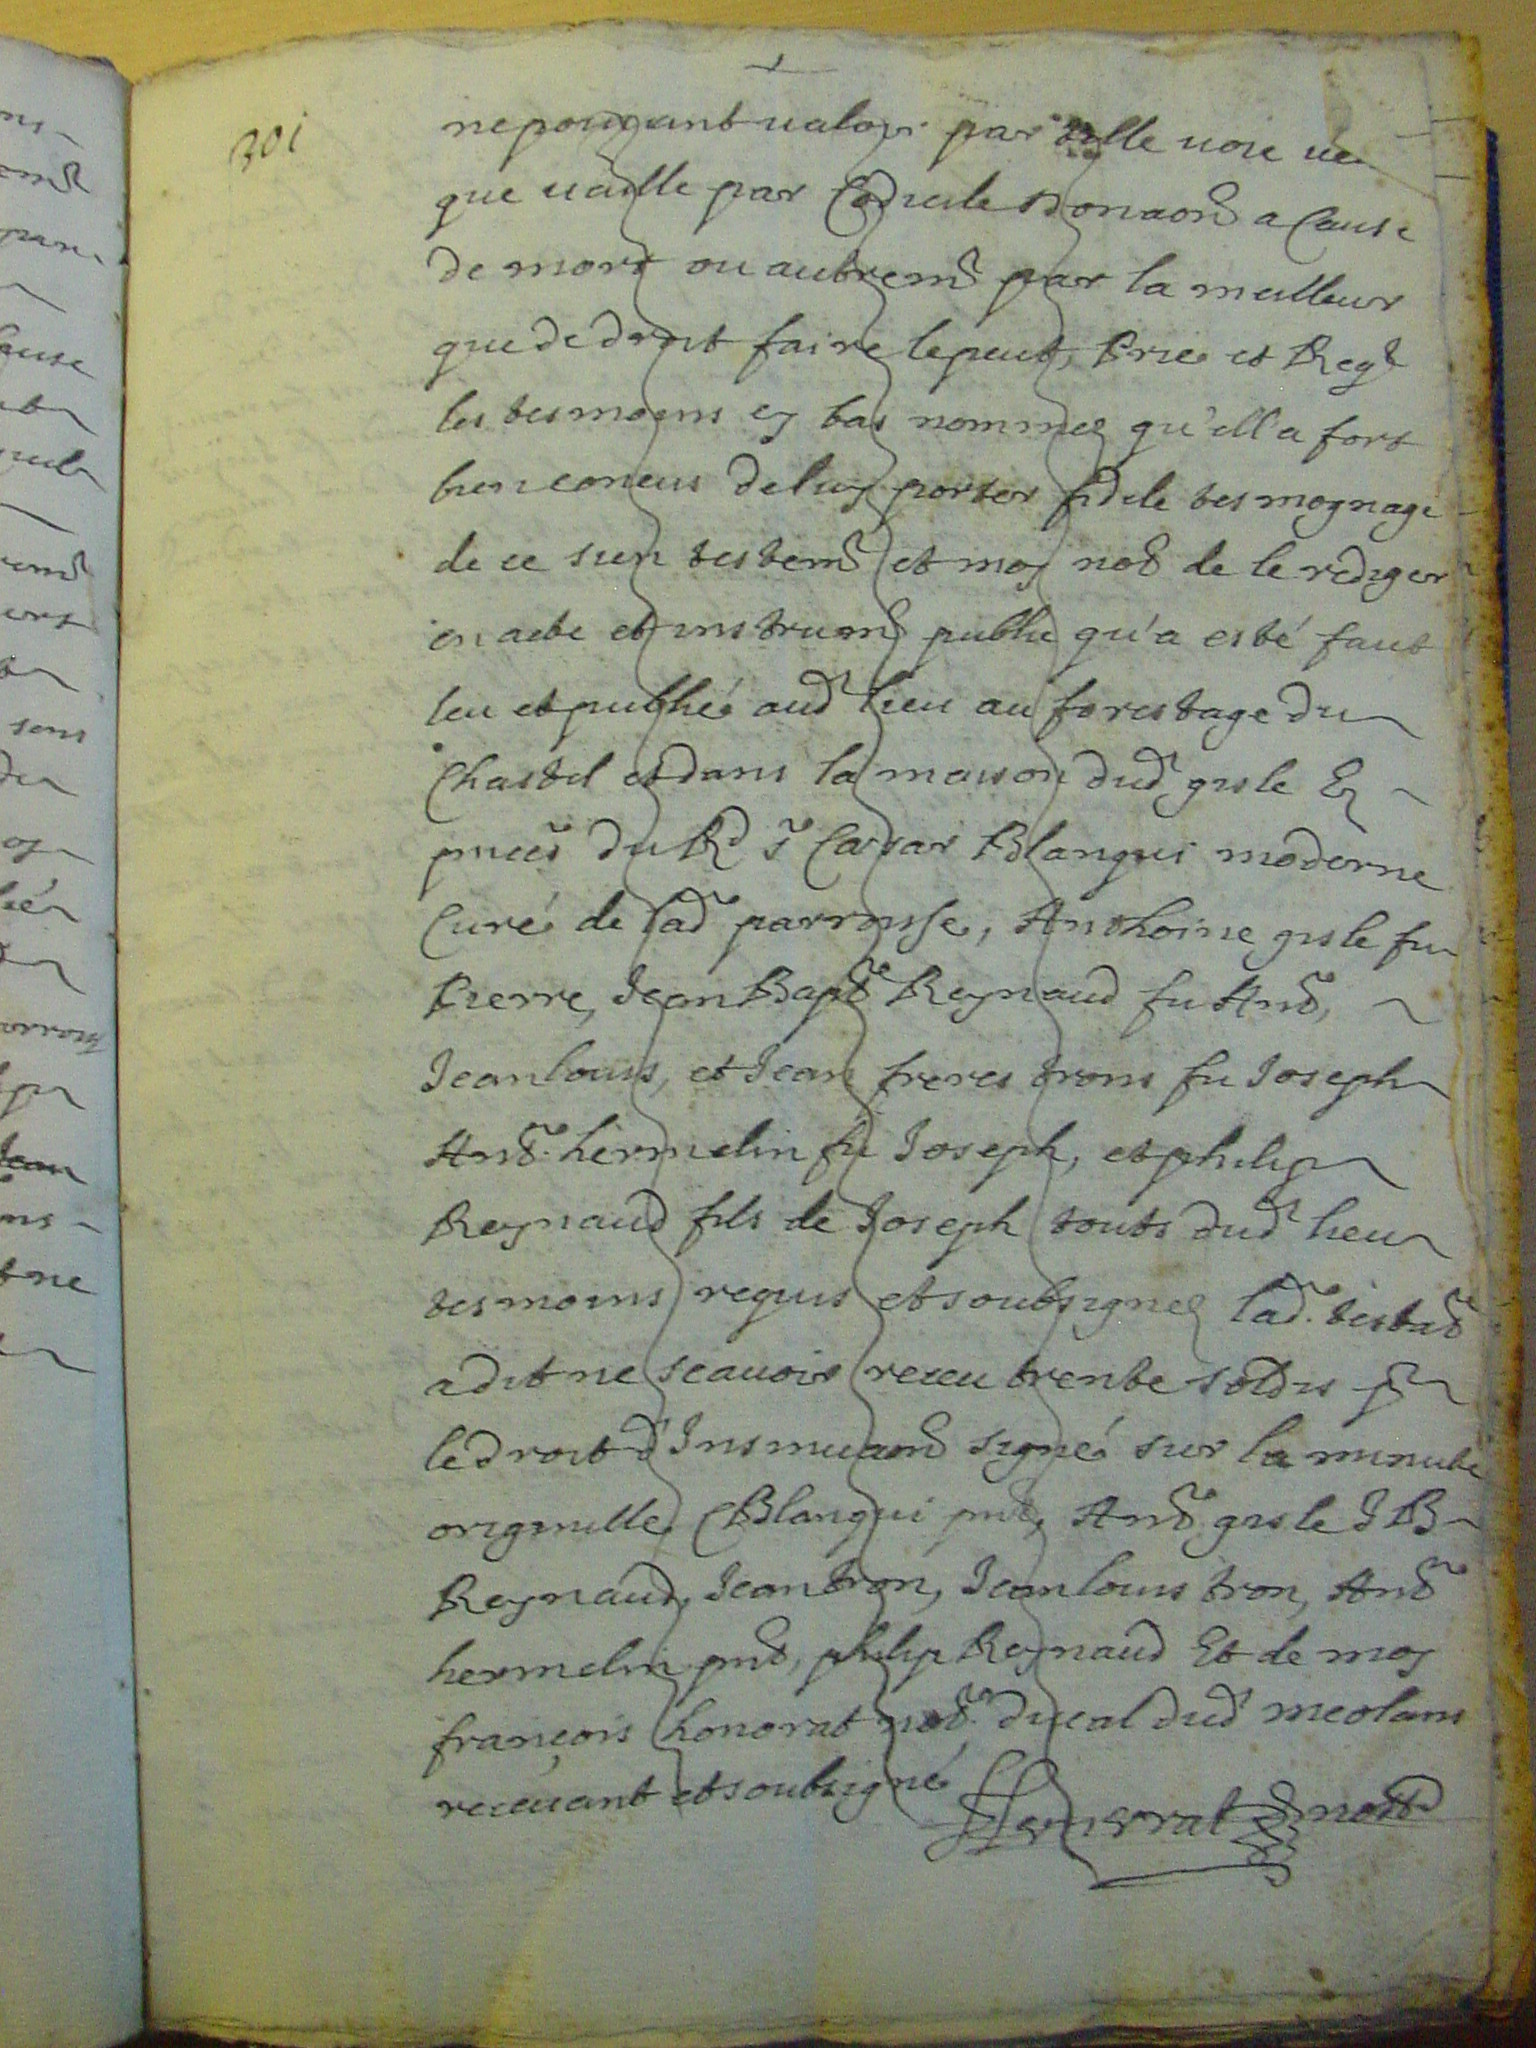 301
ne pouvant valoir par telle voie veu
que vaille par Codicile Donaon a Cause
de mort ou autrem par la meilleur
que de droit faire le peut, Prie et Req
les tesmoins ej bas nommes qu'ell'a fort
bien coneus de luj porter fidele tesmognage
de ce sien testem et moj not de le rediger
en acte et instrum public qu'a esté fait
leu et publié aud lieu au forestage du
Chastel et dans la maison dud gisle Ez
pnces du Rd Sr Caesar Blanqui moderne
Curé de lad parroisse, Anthoine gisle fu
Pierre, Jean Bapt Reynaud fu Ant,
Jean louis, et Jean freres trons fu Joseph
Ant hermelin fu Joseph, et philip
Reynaud fils de Joseph touts dud lieu
tesmoins requis et soubsignes lad. testat
a dit ne scavoir receu trente soldis p
le droit d'Insinuaon signé sur la minute
originelle, CBlanqui pnt, Ant gisle J B
Reynaud, Jean tron, Jean louis tron, Ant
hermelin pnt, philip Reynaud Et de moj
françois honorat not ducal dud meolans
recevant et soubsigné
Honorat not